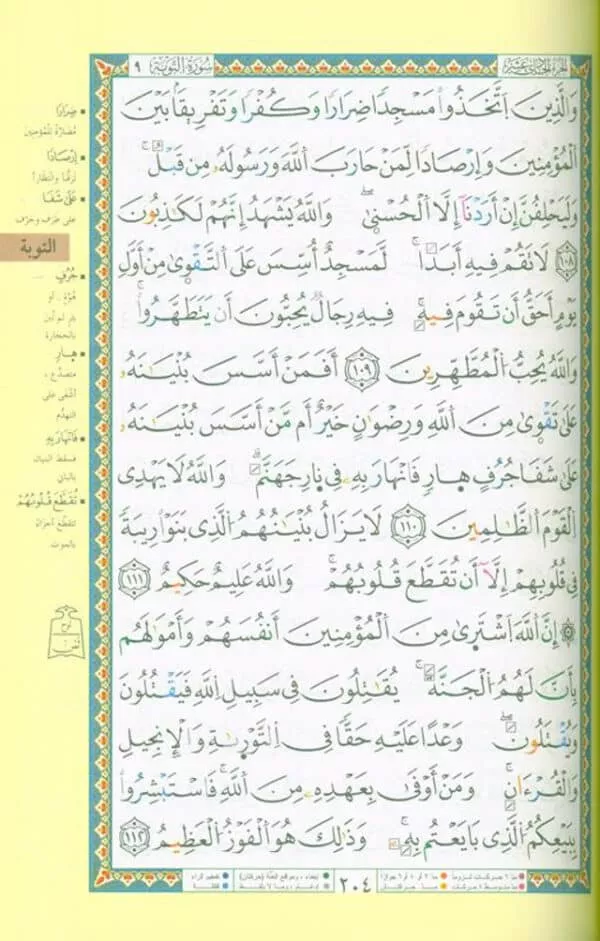 الجزء الحادي عشر
سورة التوبة ٩
وَالَّذِينَ اَتَّخَذُوا مَسْجِدًا ضِرَارًا وَكُفْرًا وَتَفْرِيقًا بَيْنَ
الْمُؤْمِنِينَ وَإِرْصَادًا لِّمَنْ حَارَبَ اللَّهَ وَرَسُولَهُ مِن قَبْلُ
وَلَيَحْلِفُنَّ إِنْ أَرَدْنَا إِلَّا الْحُسْنَىٰ وَاللَّهُ يَشْهَدُ إِنَّهُمْ لَكَاذِبُونَ
١٠٨ لَا تَقُمْ فِيهِ أَبَدًا لَّمَسْجِدٌ أُسِّسَ عَلَى التَّقْوَىٰ مِنْ أَوَّلِ
يَوْمٍ أَحَقُّ أَن تَقُومَ فِيهِ فِيهِ رِجَالٌ يُحِبُّونَ أَن يَتَطَهَّرُوا
وَاللَّهُ يُحِبُّ الْمُطَّهِّرِينَ ١٠٩ أَفَمَنْ أَسَّسَ بُنْيَٰنَهُ
عَلَىٰ تَقْوَىٰ مِنَ اللَّهِ وَرِضْوَانٍ خَيْرٌ أَم مَّنْ أَسَّسَ بُنْيَٰنَهُ
عَلَىٰ شَفَا جُرُفٍ هَارٍ فَانْهَارَ بِهِ فِي نَارِ جَهَنَّمَ وَاللَّهُ لَا يَهْدِي
الْقَوْمَ الظَّٰلِمِينَ ١١٠ لَا يَزَالُ بُنْيَٰنُهُمُ الَّذِي بَنَوْا رِيبَةً
فِي قُلُوبِهِمْ إِلَّا أَن تُقَطَّعَ قُلُوبُهُمْ وَاللَّهُ عَلِيمٌ حَكِيمٌ ١١١
إِنَّ اللَّهَ اشْتَرَىٰ مِنَ الْمُؤْمِنِينَ أَنفُسَهُمْ وَأَمْوَٰلَهُم
بِأَنَّ لَهُمُ الْجَنَّةَ يُقَٰتِلُونَ فِي سَبِيلِ اللَّهِ فَيَقْتُلُونَ
وَيُقْتَلُونَ وَعْدًا عَلَيْهِ حَقًّا فِي التَّوْرَىٰةِ وَالْإِنجِيلِ
وَالْقُرْءَانِ وَمَنْ أَوْفَىٰ بِعَهْدِهِ مِنَ اللَّهِ فَاسْتَبْشِرُوا
بِبَيْعِكُمُ الَّذِي بَايَعْتُم بِهِ وَذَٰلِكَ هُوَ الْفَوْزُ الْعَظِيمُ ١١٢
٢٠٤
ضِرَارًا
مُضَارَّةً لِلْمُؤْمِنِينَ
إِرْصَادًا
تَرَقُّبًا وانْتِظَارًا
عَلَىٰ شَفَا
على طرف وحرف
التوبة
جُرُفٍ
هُوَّةٍ أو
بئر لم تُبْنَ
بالحجارة
هَارٍ
متصدّع،
أشفى على
التهدّم
فَانْهَارَ بِهِ
فسقط البنيان
بالباني
تُقَطَّعَ قُلُوبُهُمْ
تتقطّع أجزاءً
بالموت